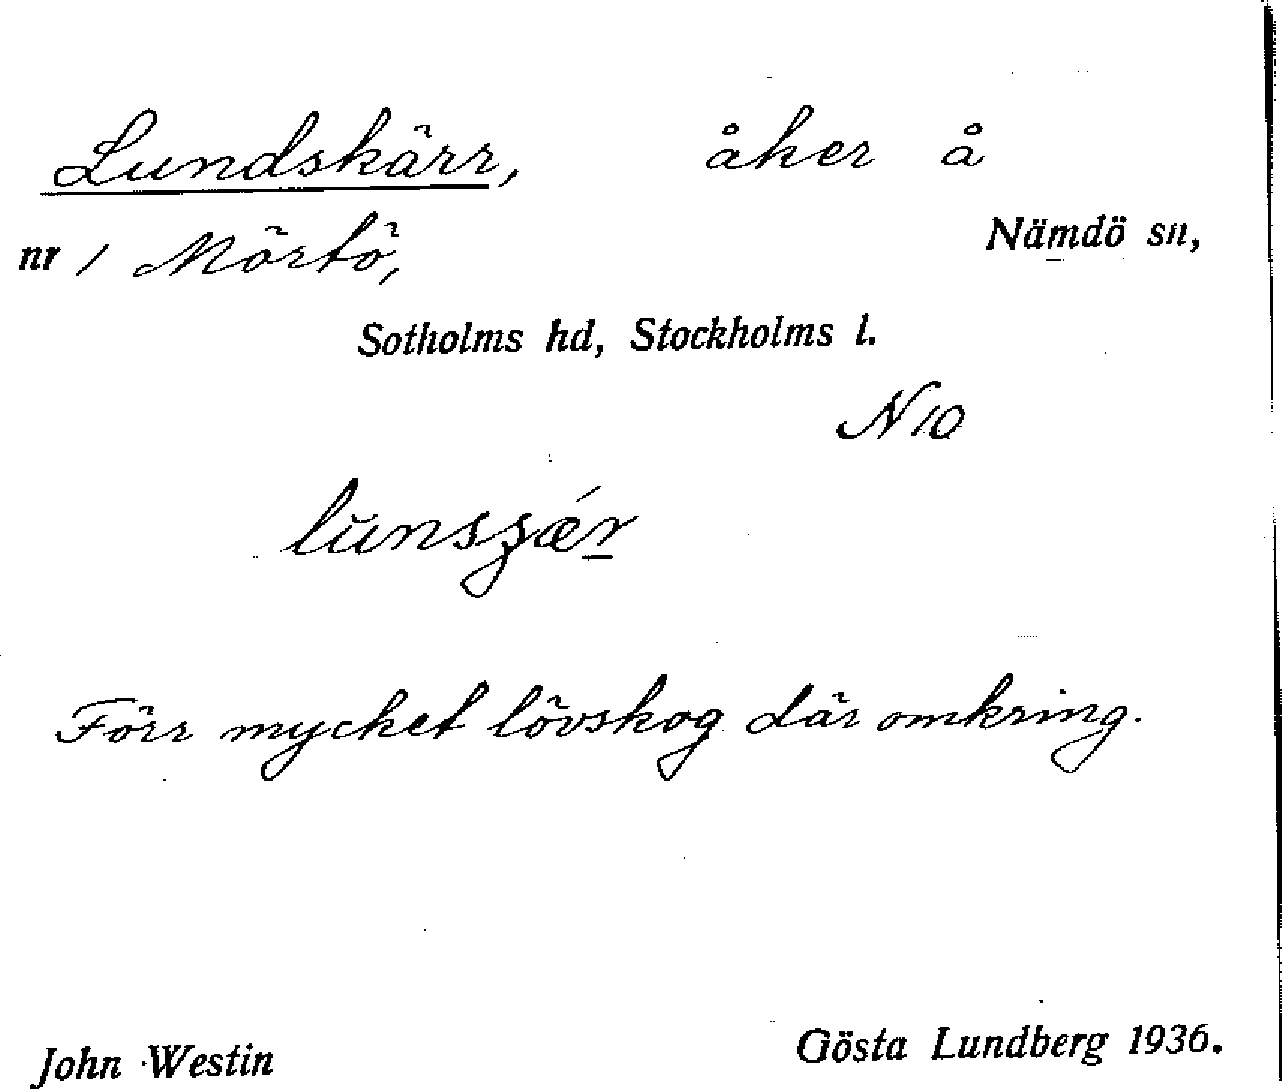 Lundskärr, åker å
nr 1 Mörtö, Nämdö sn,
Sotholms hd, Stockholms l.
N 10
Förr mycket lövskog där omkring.
John Westin Gösta Lundberg 1936.